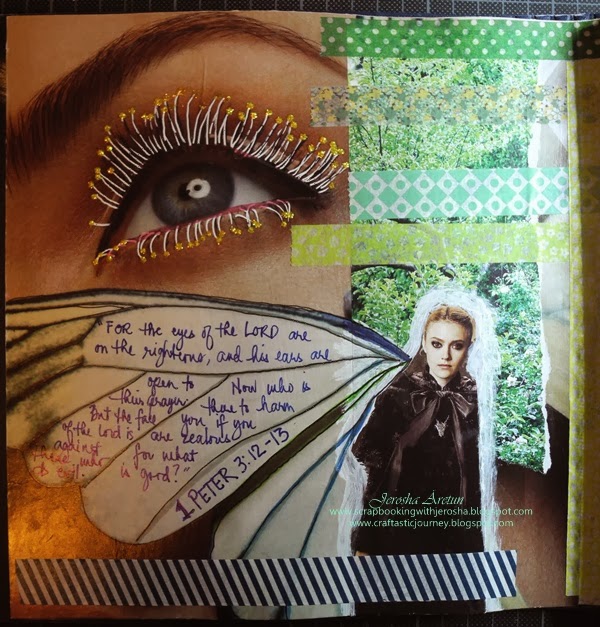 "FOR the eyes of the LORD are
on the rightious, and his ears are
open to
this prayer:
But the face
of the lord is
against
those who
do evil.
Now who is
there to harm
you if you
are zealous
for what
is good?"
1 PETER 3:12-13
Jerosha Aretun
www.scrapbookingwithjerosha.blogspot.com
www.craftasticjourney.blogspot.com